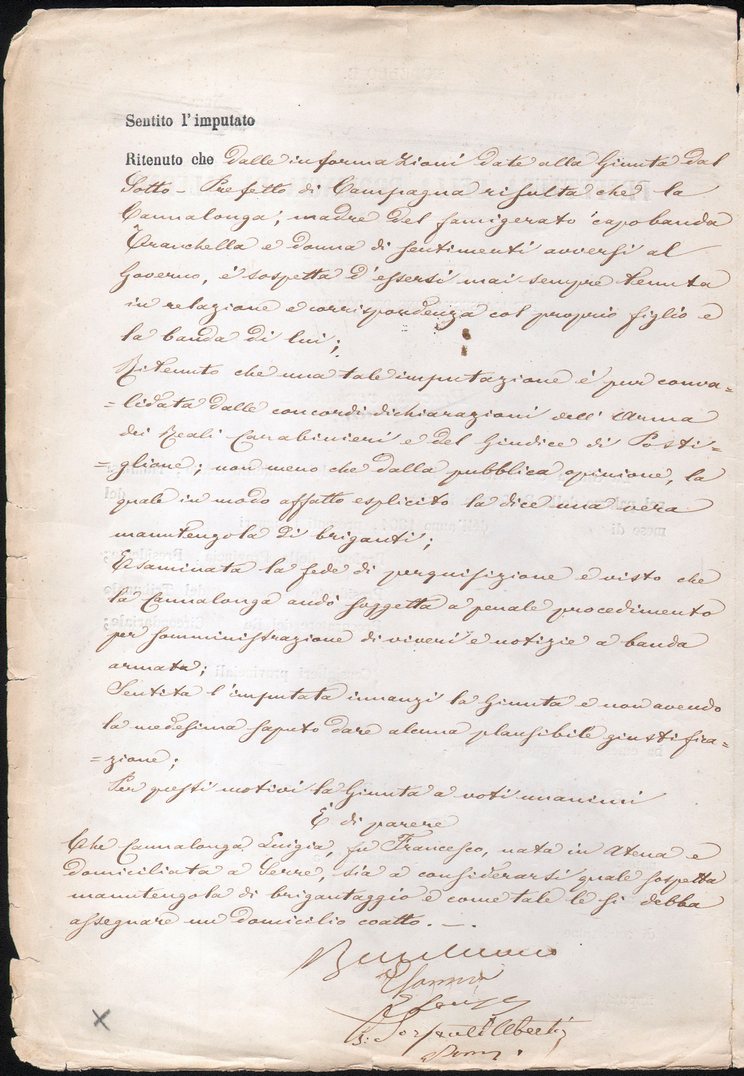 Sentito l'imputato
Ritenuto che dalle informazioni date alla Giunta dal
Sotto-Prefetto di Campagna risulta che la
Cannalonga, madre del famigerato capobanda
Tranchella e donna di sentimenti avversi al
Governo, è sospetta d'essersi mai sempre tenuta
in relazione e corrispondenza col proprio figlio e
la banda di lui;
Ritenuto che una tale imputazione è pur conva=
=lidata dalle concordi dichiarazioni dell'Arma
dei Reali Carabinieri e del Giudice di Posti=
=glione; non meno che dalla pubblica opinione, la
quale in modo affatto esplicito la dice una vera
manutengola di briganti;
Esaminata la fede di perquisizione e visto che
la Cannalonga andò soggetta a penale procedimento
per somministrazione di viveri e notizie a banda
armata;
Sentita l'imputata innanzi la Giunta e non avendo
la medesima saputo dare alcuna plausibile giustifica=
=zione;
Per questi motivi la Giunta a voti unanimi
È di parere
Che Cannalonga Luigia, fu Francesco, nata in Atena e
domiciliata a Serre, sia a considerarsi quale sospetta
manutengola di brigantaggio e come tale le si debba
assegnare un domicilio coatto.